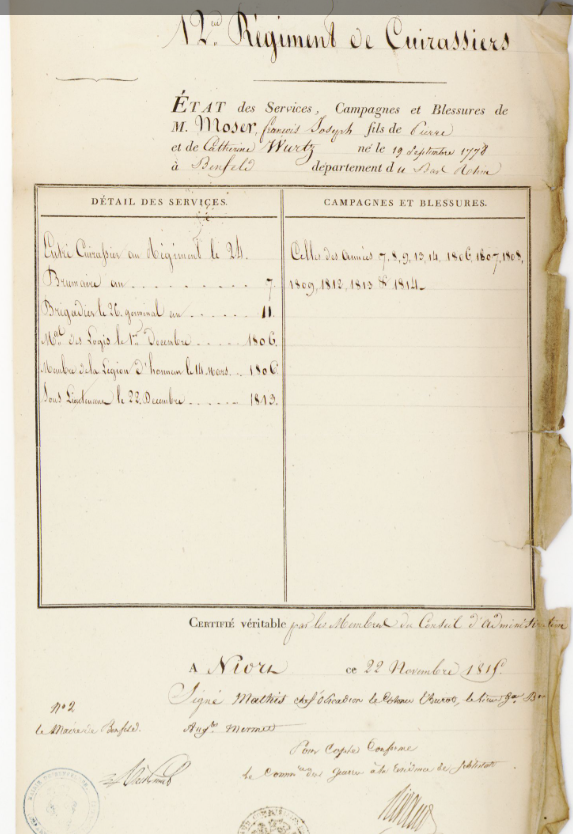 12me Régiment de Cuirassiers
ÉTAT des Services, Campagnes et Blessures de
M. Moser, françois Joseph fils de Pierre
et de Catherine Wurtz né le 19 Septembre 1778
à Benfeld département du Bas Rhin
DÉTAIL DES SERVICES.
Entré Cuirassier au Régiment le 24.
Brumaire an . . . . . . . . . 7.
Brigadier le 26. germinal an . . . . . . 11.
Mal des Logis le 1er Decembre . . . . . 1806.
Membre de la Légion d'honneur le 14 Mars. . . 1806
Sous Lieutenant le 22. Decembre . . . . . 1813.
CAMPAGNES ET BLESSURES.
Celles des années 7, 8, 9, 13, 14, 1806, 1807, 1808,
1809, 1812, 1813 & 1814.
CERTIFIÉ véritable par les Membres du Conseil d'administration
A Niort ce 22 Novembre 1815
Signé Mathis chef d'Escadron le
Mermet
Pour Copie Conforme
Le des guerres à la Résidence de
n° 2
le Maire de Benfeld.